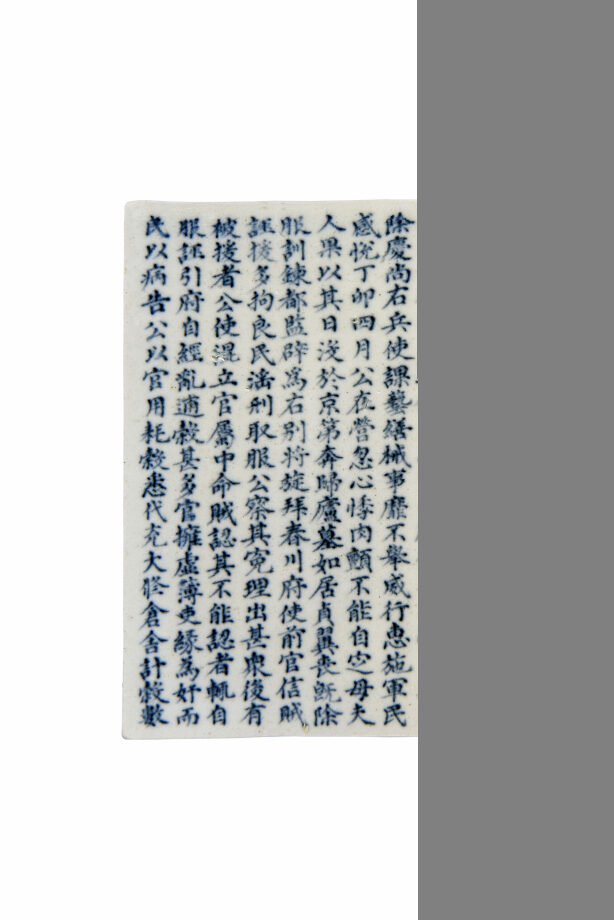 除慶尚右兵使課藝繕械事靡不舉威行惠施軍民
感悅丁卯四月公在營忽心悸肉顫不能自定母夫
人果以其日沒於京第奔歸廬墓如居貞翼喪旣除
服訓鍊都監辟爲右別將旋拜春川府使前官信賊
誣援多拘良民滛刑取服公察其寃理出甚衆後有
被援者公使混立官屬中命賊認其不能認者輒自
服誣引府自經亂逋糓甚多官擁虛簿吏緣為奸而
民以病告公以官用耗糓悉代充大修倉舍計糓數